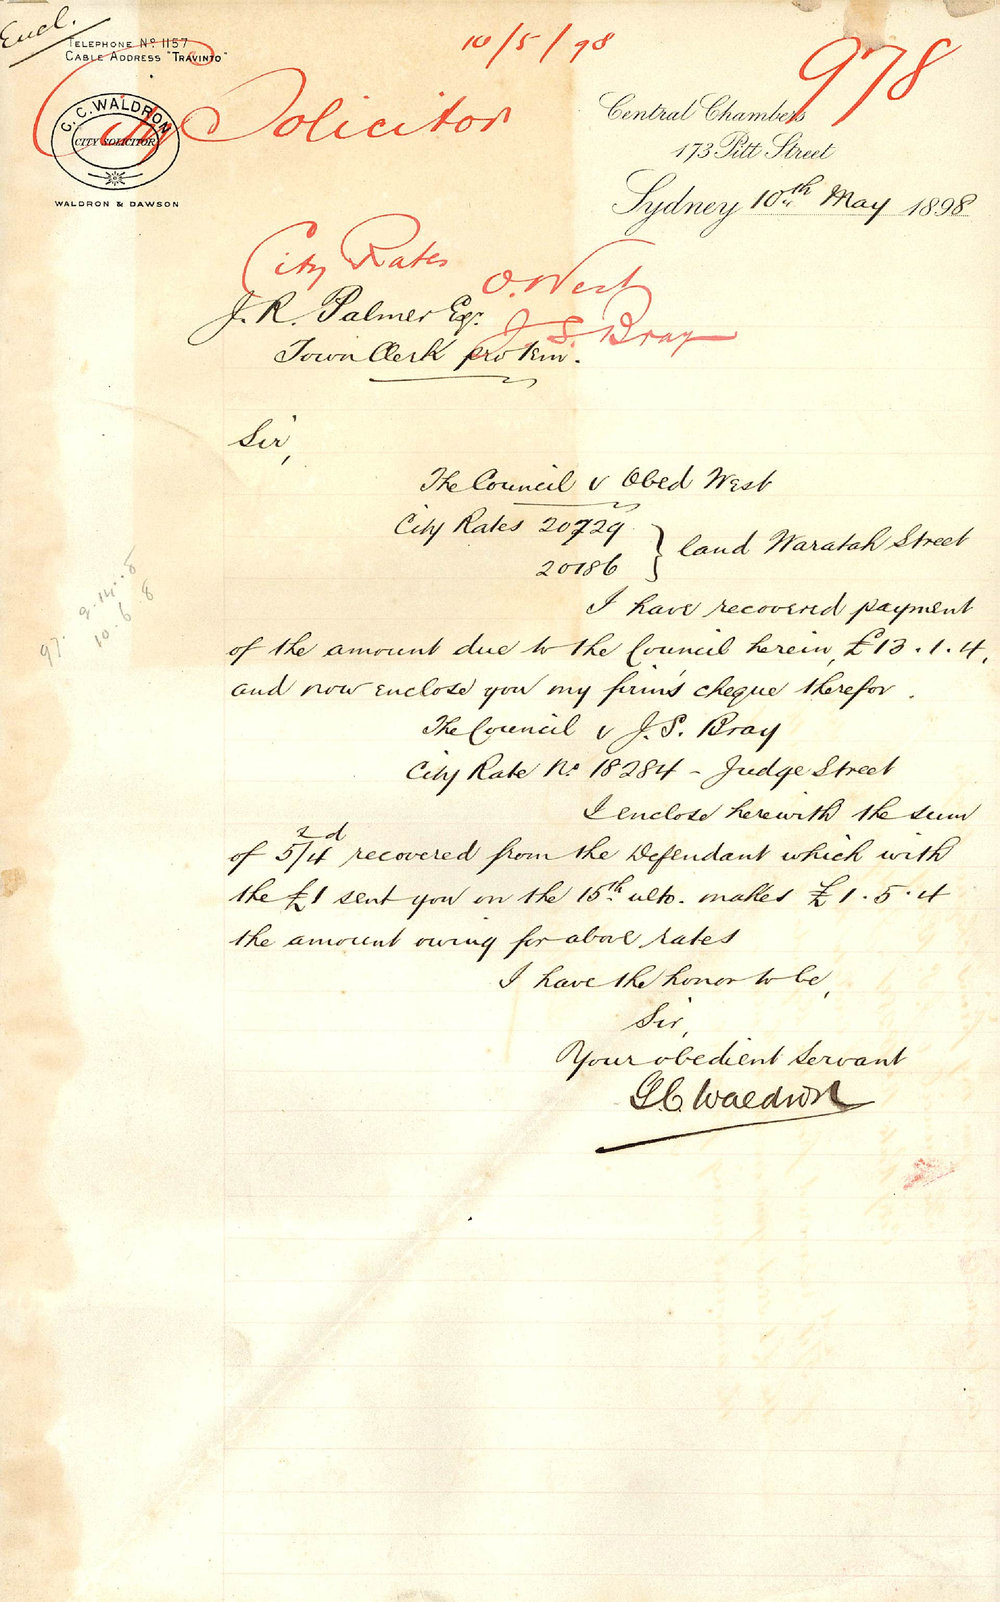 Encl.
TELEPHONE No 1157
CABLE ADDRESS "TRAVINTO"
10/5/98
978
City Solicitor
G. C. WALDRON
CITY SOLICITOR
WALDRON & DAWSON
Central Chambers
173 Pitt Street
Sydney 10th May 1898
City Rates
O. West
J. S. Bray
J. R. Palmer Esq.
Town Clerk pro tem.
Sir,
The Council v Obed West
City Rates 20729
20186 } land Waratah Street
I have recovered payment
of the amount due to the Council herein, £13.1.4,
and now enclose you my firm's cheque therefor.
The Council v J. S. Bray
City Rate No 18284 - Judge Street
I enclose herewith the sum
of 5s/4d recovered from the Defendant which with
the £1 sent you on the 15th ulto. makes £1.5.4
the amount owing for above rates
I have the honor to be,
Sir,
Your obedient servant
G C Waldron
97. 9.14.8
10.6 8